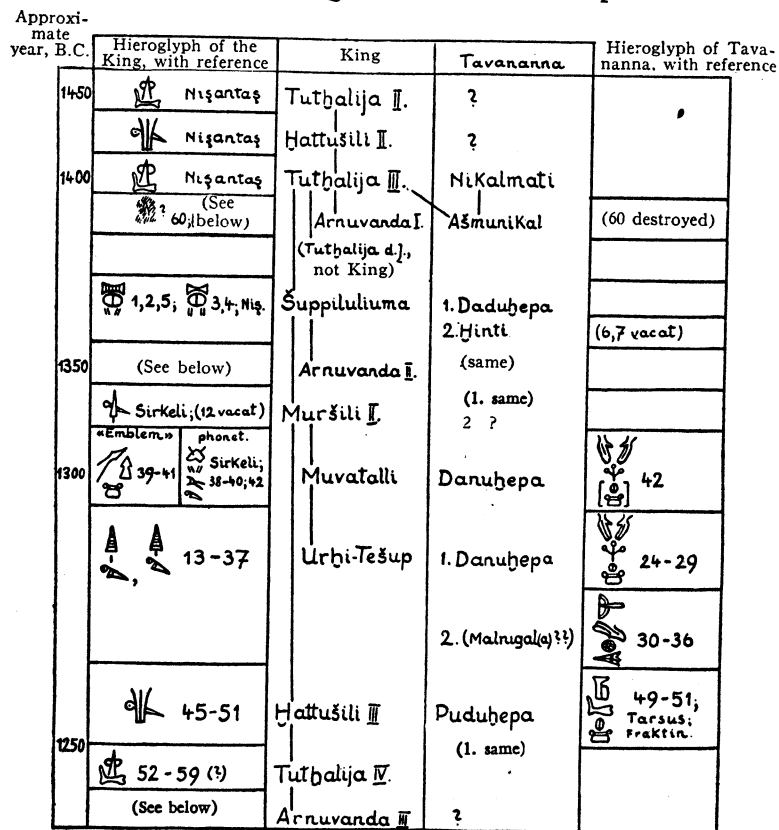 Approxi-
mate
year, B.C.
Hieroglyph of the King, with reference
King
Tavananna
Hieroglyph of Tava-
nanna. with reference
1450 Nişantaş Tutḫalija II. ?
Nişantaş Ḫattušili II. ?
1400 Nişantaş Tutḫalija III. Nikalmati
? (See 60; below) Arnuvanda I. Ašmunikal (60 destroyed)
(Tutḫalija d.J., not King)
1,2,5; 3,4; Niş. Šuppiluliuma 1. Daduḫepa
2. Ḫinti (6,7 vacat)
1350 (See below) Arnuvanda II. (same)
Sirkeli; (12 vacat) Muršili II. (1. same)
2 ?
«Emblem» phonet.
1300 39-41 Sirkeli; 38-40; 42 Muvatalli Danuḫepa 42
, 13-37 Urḫi-Tešup 1. Danuḫepa 24-29
2. (Malnigal(a)??) 30-36
45-51 Ḫattušili III Puduḫepa 49-51; Tarsus; Fraktin.
1250 (1. same)
52-59 (?) Tutḫalija IV.
(See below) Arnuvanda III ?